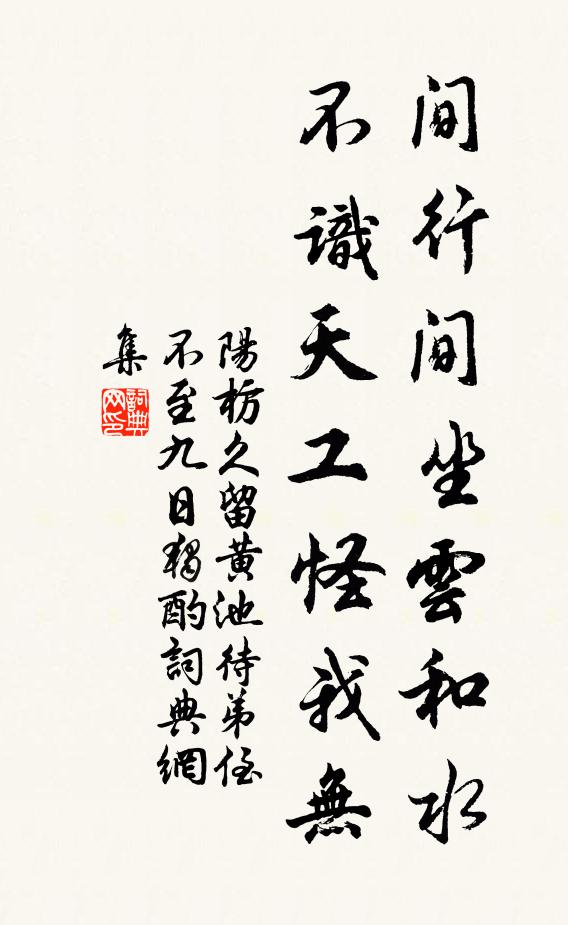 間行間坐雲和水
不識天工怪我無
陽枋久留黄池待弟侄
不至九日獨酌詞典網
集
詞典网印